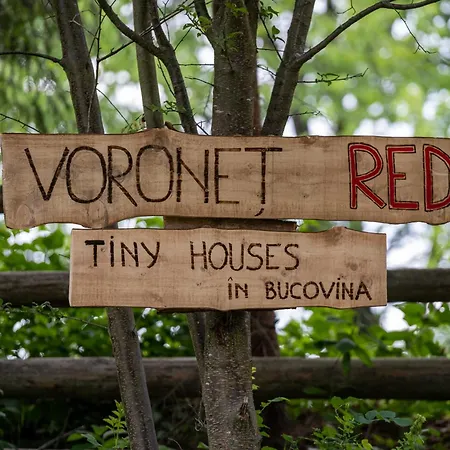 VORONEȚ RED
TINY HOUSES
în BUCOVINA